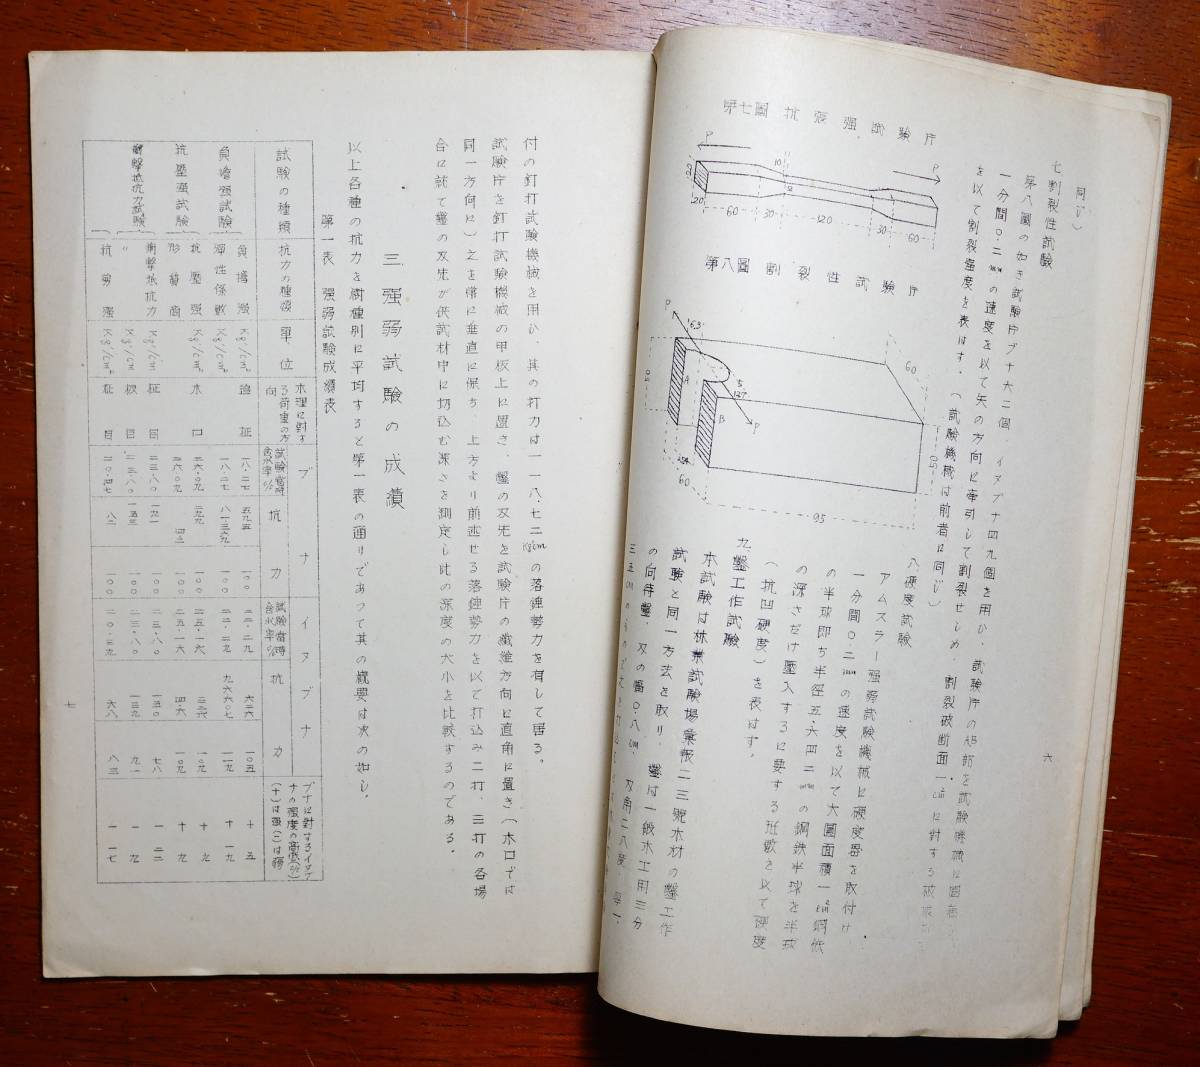 六
同じ）
七 割裂性試験
第八圖の如き試験片ブナ六二個、イヌブナ四九個を用ひ、試験片の
一分間〇.二㎜の速度を以て矢の方向に牽引して割裂せしめ、割裂破断面一㎠に対する破壊
を以て割裂强度を表はす。（試験機械は前者に同じ）
第七圖 抗張强試験片
P
P
20
20
60
30
120
30
60
第八圖 割裂性試験片
P
A
B
P
60
50
60
95
八 硬度試験
アムスラー强弱試験機械に硬度器を取付け
一分間〇.二㎜の速度を以て大圓面積一㎠鋼鉄
の半球即ち半径五.六四二㎜の鋼鉄半球を半球
の深さだけ壓入するに要する瓩数を以て硬度
（抗凹硬度）を表はす。
九 鑿工作試験
本試験は林業試験場彙報二三號木材の鑿工作
試験と同一方法を取り、鑿は一般木工用三分
の向待鑿、刄の幅〇.八㎝、刄角二八度、
付の釘打試験機械を用ひ、其の打力は一一八.七二㎏㎝の落錘勢力を有して居る。
試験片を釘打試験機械の甲板上に置き、鑿の刄先を試験片の纖維方向に直角に置き（木口では
同一方向に）之を常に垂直に保ち、上方より前述せる落錘勢力を以て打込み二打、三打の各場
合に就て鑿の刄先が供試材中に切込む深さを測定し此の深度の大小を比較するのである。
三 强弱試験の成績
以上各種の抗力を樹種別に平均すると第一表の通りであつて其の概要は次の如し。
第一表 强弱試験成績表
試験の種類 抗力の種類 單位 木理に對する荷重の方向 ブナ 試験當時含水率% 抗力 イヌブナ 試験當時含水率% 抗力 ブナに對するイヌブナの强度の高低(%)(+)は强(-)は弱
負擔强試験 負擔强 Kg/cm² 追柾 一八.二七 五九五 一〇〇 二二.二九 六二六 一〇五 十 五
彈性係數 Kg/cm² 一八.二七 八一三九九 一〇〇 二二.二九 九六六〇七 一一九 十 一九
抗壓强試験 抗壓强 Kg/cm² 木口 二六.〇九 二九九 一〇〇 二五.一六 三二六 一〇九 十 九
二六.〇九 一〇〇 二五.一六 四.六 一〇九 十 九
衝擊抵抗力試験 衝擊抵抗力 Kg/cm 柾目 二三.八〇 一九一 一〇〇 二三.八〇 一五〇 七八 一 二二
〃 Kg/cm 板目 二三.八〇 一五三 一〇〇 二三.八〇 一三九 九一 一 九
抗剪强 Kg/cm² 柾目 二〇.四七 八二 一〇〇 二〇.三九 六八 八三 一 一七
七